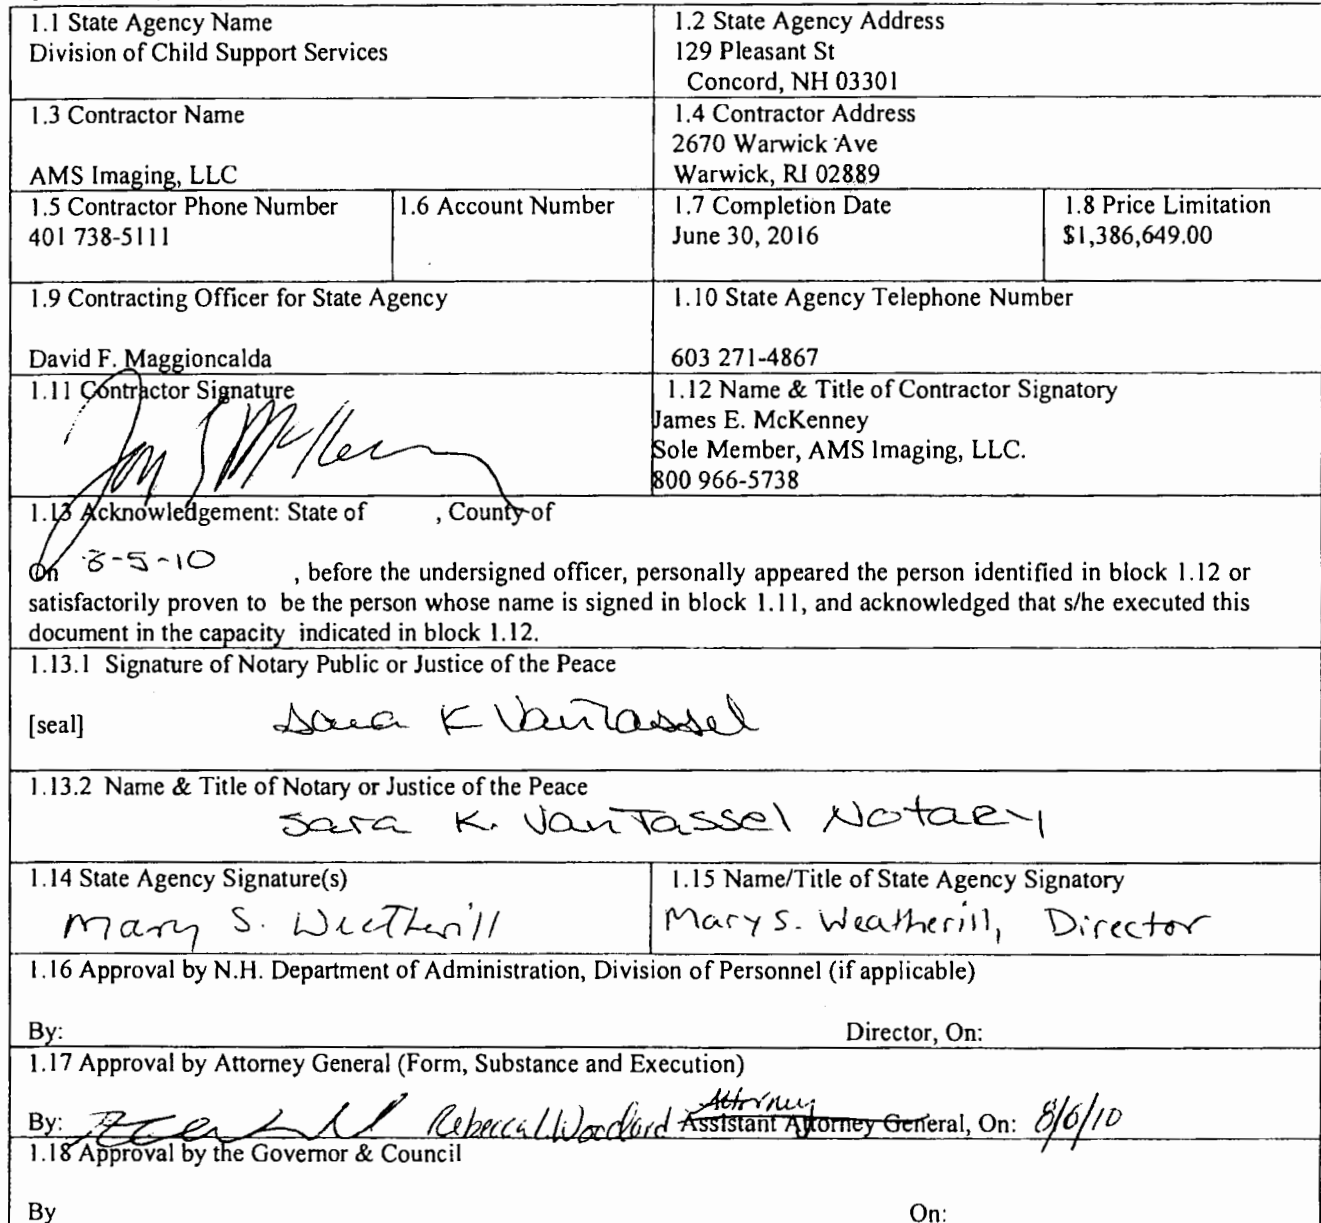 1.1 State Agency Name
Division of Child Support Services
1.2 State Agency Address
129 Pleasant St
Concord, NH 03301
1.3 Contractor Name
AMS Imaging, LLC
1.4 Contractor Address
2670 Warwick Ave
Warwick, RI 02889
1.5 Contractor Phone Number
401 738-5111
1.6 Account Number
1.7 Completion Date
June 30, 2016
1.8 Price Limitation
$1,386,649.00
1.9 Contracting Officer for State Agency
David F. Maggioncalda
1.10 State Agency Telephone Number
603 271-4867
1.11 Contractor Signature
1.12 Name & Title of Contractor Signatory
James E. McKenney
Sole Member, AMS Imaging, LLC.
800 966-5738
1.13 Acknowledgement: State of , County of
On 8-5-10 , before the undersigned officer, personally appeared the person identified in block 1.12 or
satisfactorily proven to be the person whose name is signed in block 1.11, and acknowledged that s/he executed this
document in the capacity indicated in block 1.12.
1.13.1 Signature of Notary Public or Justice of the Peace
[seal] Sara K VanTassel
1.13.2 Name & Title of Notary or Justice of the Peace
Sara K. VanTassel Notary
1.14 State Agency Signature(s)
Mary S. Weatherill
1.15 Name/Title of State Agency Signatory
Mary S. Weatherill, Director
1.16 Approval by N.H. Department of Administration, Division of Personnel (if applicable)
By: Director, On:
1.17 Approval by Attorney General (Form, Substance and Execution)
Attorney
By: Rebecca L. Woodard Assistant Attorney General, On: 8/6/10
1.18 Approval by the Governor & Council
By On: